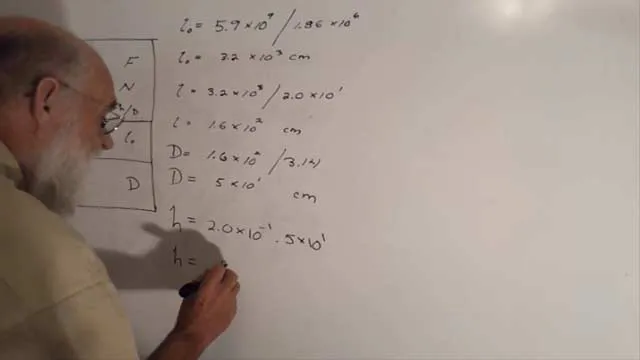 l₀ = 5.9 × 10⁹ / 1.86 × 10⁶
l₀ = 3.2 × 10³ cm
l = 3.2 × 10³ / 2.0 × 10¹
l = 1.6 × 10² cm
D = 1.6 × 10² / 3.14
D = 5 × 10¹ cm
h = 2.0 × 10⁻¹ · 5 × 10¹
h =
F
N
/D
l₀
D